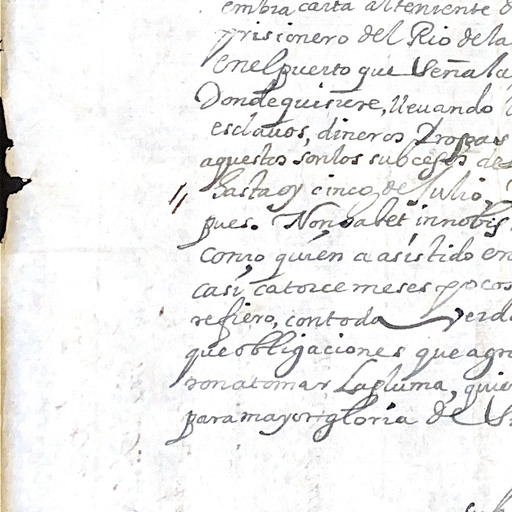 embia carta al teniente
prisionero del Rio de la
en el puerto que Señala
Donde quisiere, lleuando
esclauos, dineros Y ropas
aquestos son los subcesos de
hasta oy cinco, de Julio,
pues. Non habet in nobis
como quien a asistido en
casi catorce meses pocos
refiero, con toda verd
que obligaciones que agra
ron a tomar La pluma, quie
para mayor gloria de